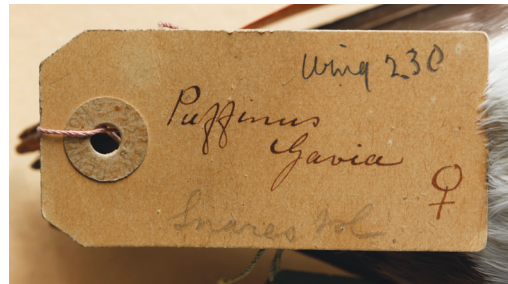 Wing 230
Puffinus
Gavia
♀
Snares Isl.